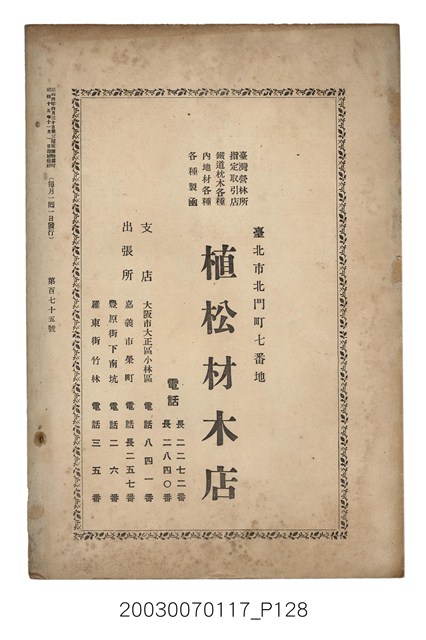 臺灣營林所
指定取引店
鐵道枕木各種
內地材各種
各種製凾
臺北市北門町七番地
植松材木店
電話 長二二七二番
長二八四〇番
支店 大阪市大正區小林區 電話八四一番
出張所 嘉義市榮町 電話長二五七番
豐原街下南坑 電話二六番
羅東街竹林 電話三五番
(每月一回一日發行)
第百七十五號
20030070117_P128